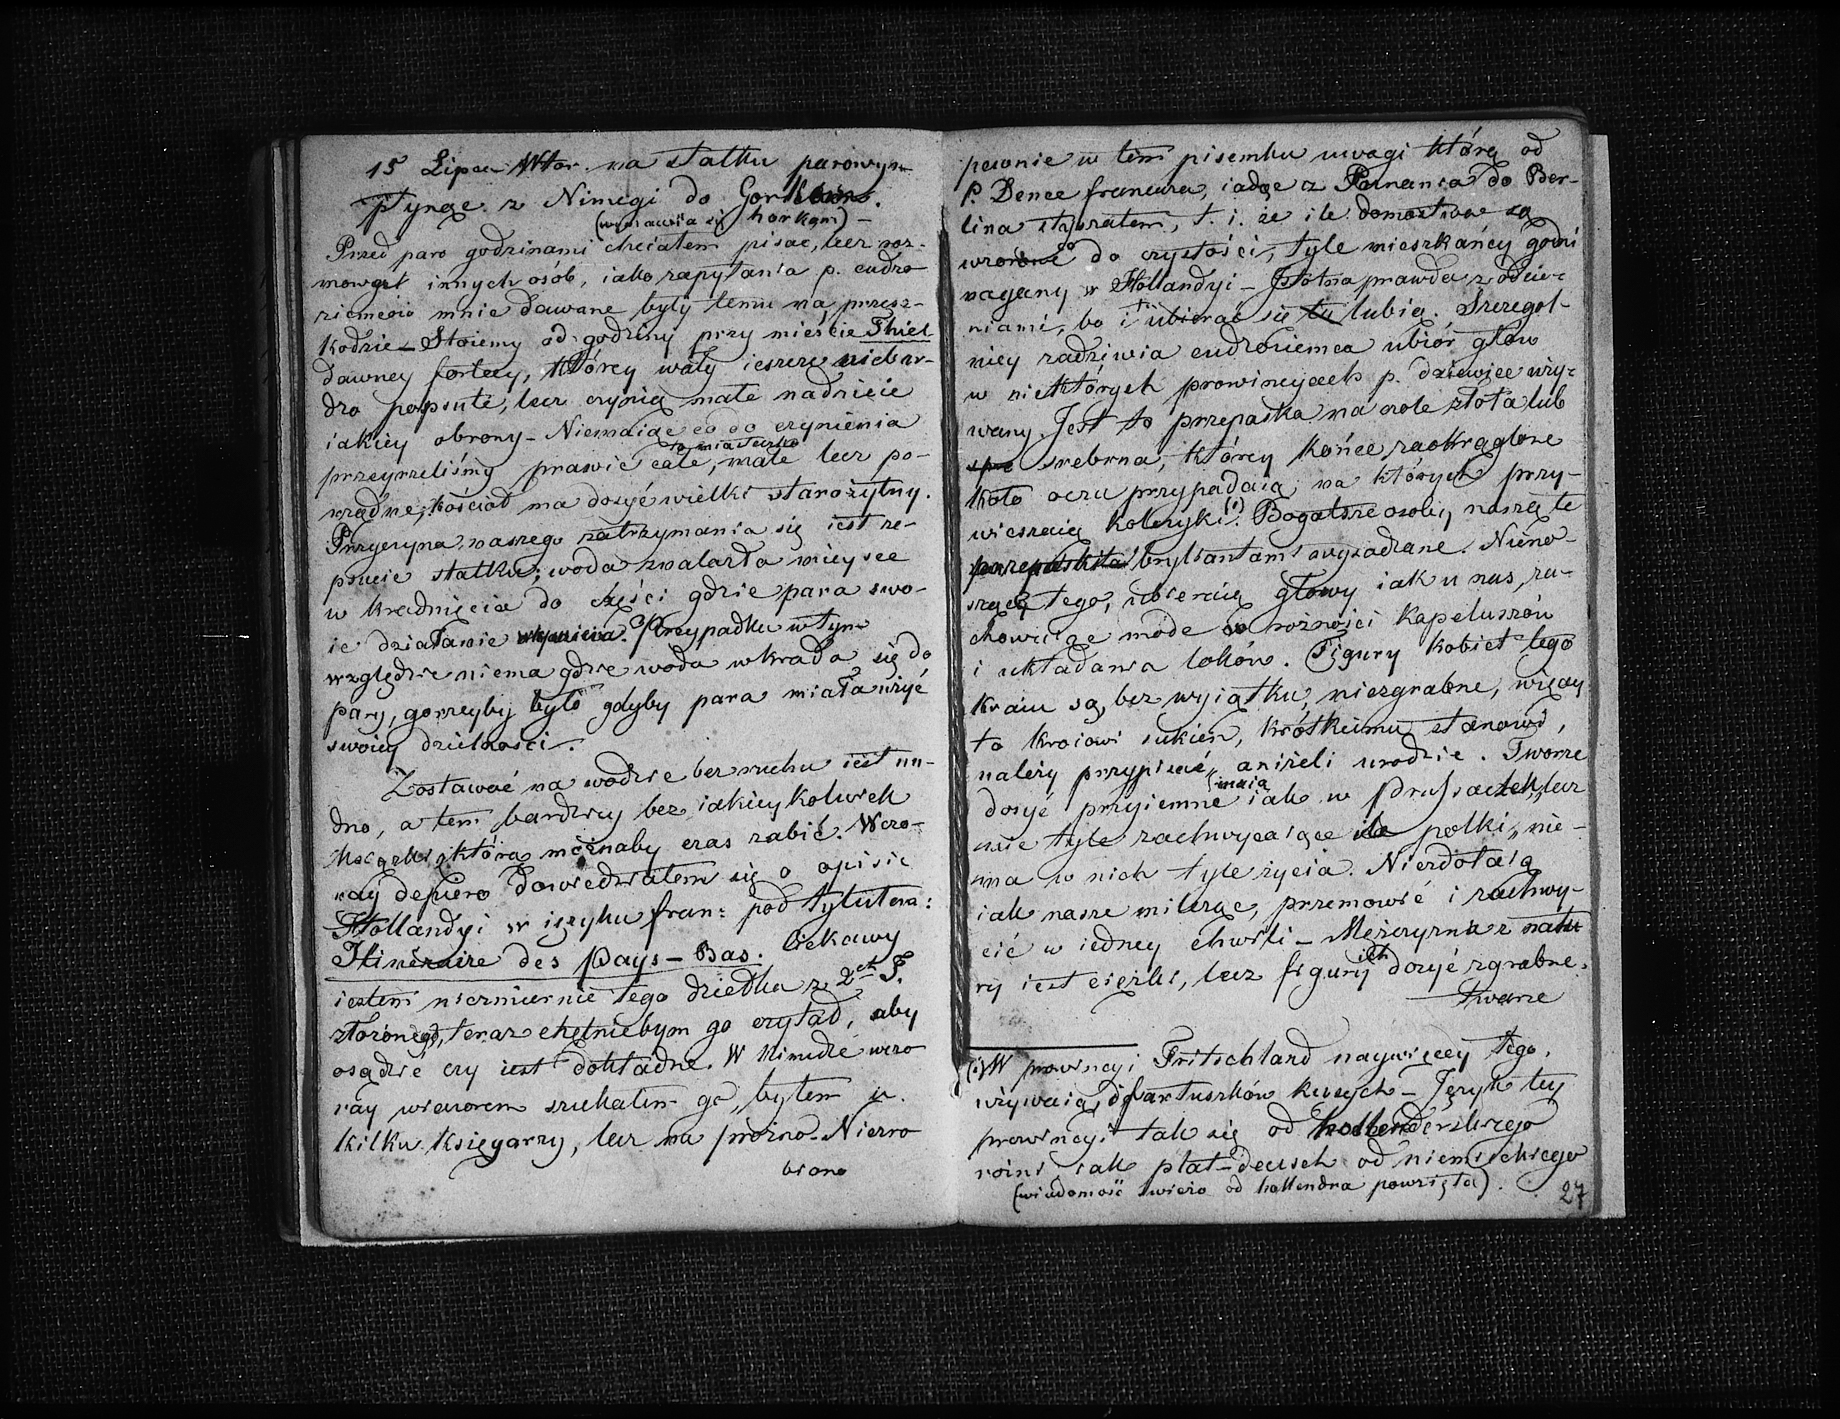 15 Lipca Wtor. na statku parowym
płynąc z Nimegi do Gorkum.
(wymawia się horkom) –
Przed paro godzinami chciałem pisać, lecz roz-
mowy innych osób, iako zapytania p. cudzo
ziemców mnie dawane były temu na przesz-
kodzie – Stoiemy od godziny przy mieście Thiel
dawney fortecy, którey wały ieszcze niebar-
dzo popsute, lecz czynią małe nadzieie
iakiey obrony – Niemaiąc co do czynienia
to miasteczko
przeyrzeliśmy prawie całe, małe lecz po-
rządne, kościoł ma dosyć wielki starożytny.
Przyczyną naszego zatrzymania się iest ze-
psucie statku; woda znalazła mieysce
w kradnięcia do części gdzie para swo-
ie działanie. Przypadku w tym
względzie niema gdzie woda wkrada się do
pary, gorzeyby było gdyby para miała użyć
swoiey dzielności.
Zostawać na wodzie bez ruchu iest nu-
dno, a tem bardziey bez iakieykolwiek
książki którą możnaby czas zabić. Wczo-
ray dopiero dowiedziałem się o opisie
Hollandyi w ięzyku fran: pod tytułem:
Itinéraire des Pays-Bas. Ciekawy
iestem niezmiernie tego dziełka z 2ch T.
złożonego, teraz chętniebym go czytał, aby
osądzić czy iest dokładne. W Nimedze wczo
ray wieczorem szukałem go, byłem u
kilku księgarzy, lecz na prożno. Niezro
biono
pewnie w tem pisemku uwagi którą od
P. Dence francuza, iadąc z Poznania do Ber-
lina słyszałem, t. i. że ile domostwa są
wzorowe do czystości, tyle mieszkańcy godni
nagany w Hollandyi – Istotna prawda z odzie-
niami, bo i ubierać się tu lubią. Szczegol-
niey zadziwia cudzoziemca ubiór głów
w niektórych prowincyach p. dziewice uży-
wany. Jest to przepaska na czole złota lub
srebrna, którey końce zaokrąglone
koło oczu przypadaią, na których przy-
wieszaią kolczyki (1). Bogatsze osoby noszą te
przepaski brylantami wysadzane. Nieno-
szący tego, ubieraią głowy iak u nas, za-
chowuiąc mode co rożności kapeluszów
i układania loków. Figury kobiet tego
kraiu są, bez wyiątku, niezgrabne, więcey
to kroiowi sukien, krótkiemu stanowi,
należy przypisać, aniżeli urodzie. Twarze
maią
dosyć przyiemne iak w Prussach, lecz
nie tyle zachwycaiące ile polki, nie-
ma w nich tyle życia. Niezdołaią
iak nasze milcząc, przemowić i zachwy-
cić w iedney chwili – Mężczyzna z natu
ry iest ciężki, lecz figury ich dosyć zgrabne.
Twarze
(1) W prowincyi Fritschland naywięcey tego
używaią, i fartuszków kusych – Język tey
prowincyi tak się od hollenderskiego
rożni iak plat-deusch od niemieckiego
(wiadomość swieżo od hollendra powzięta).
27